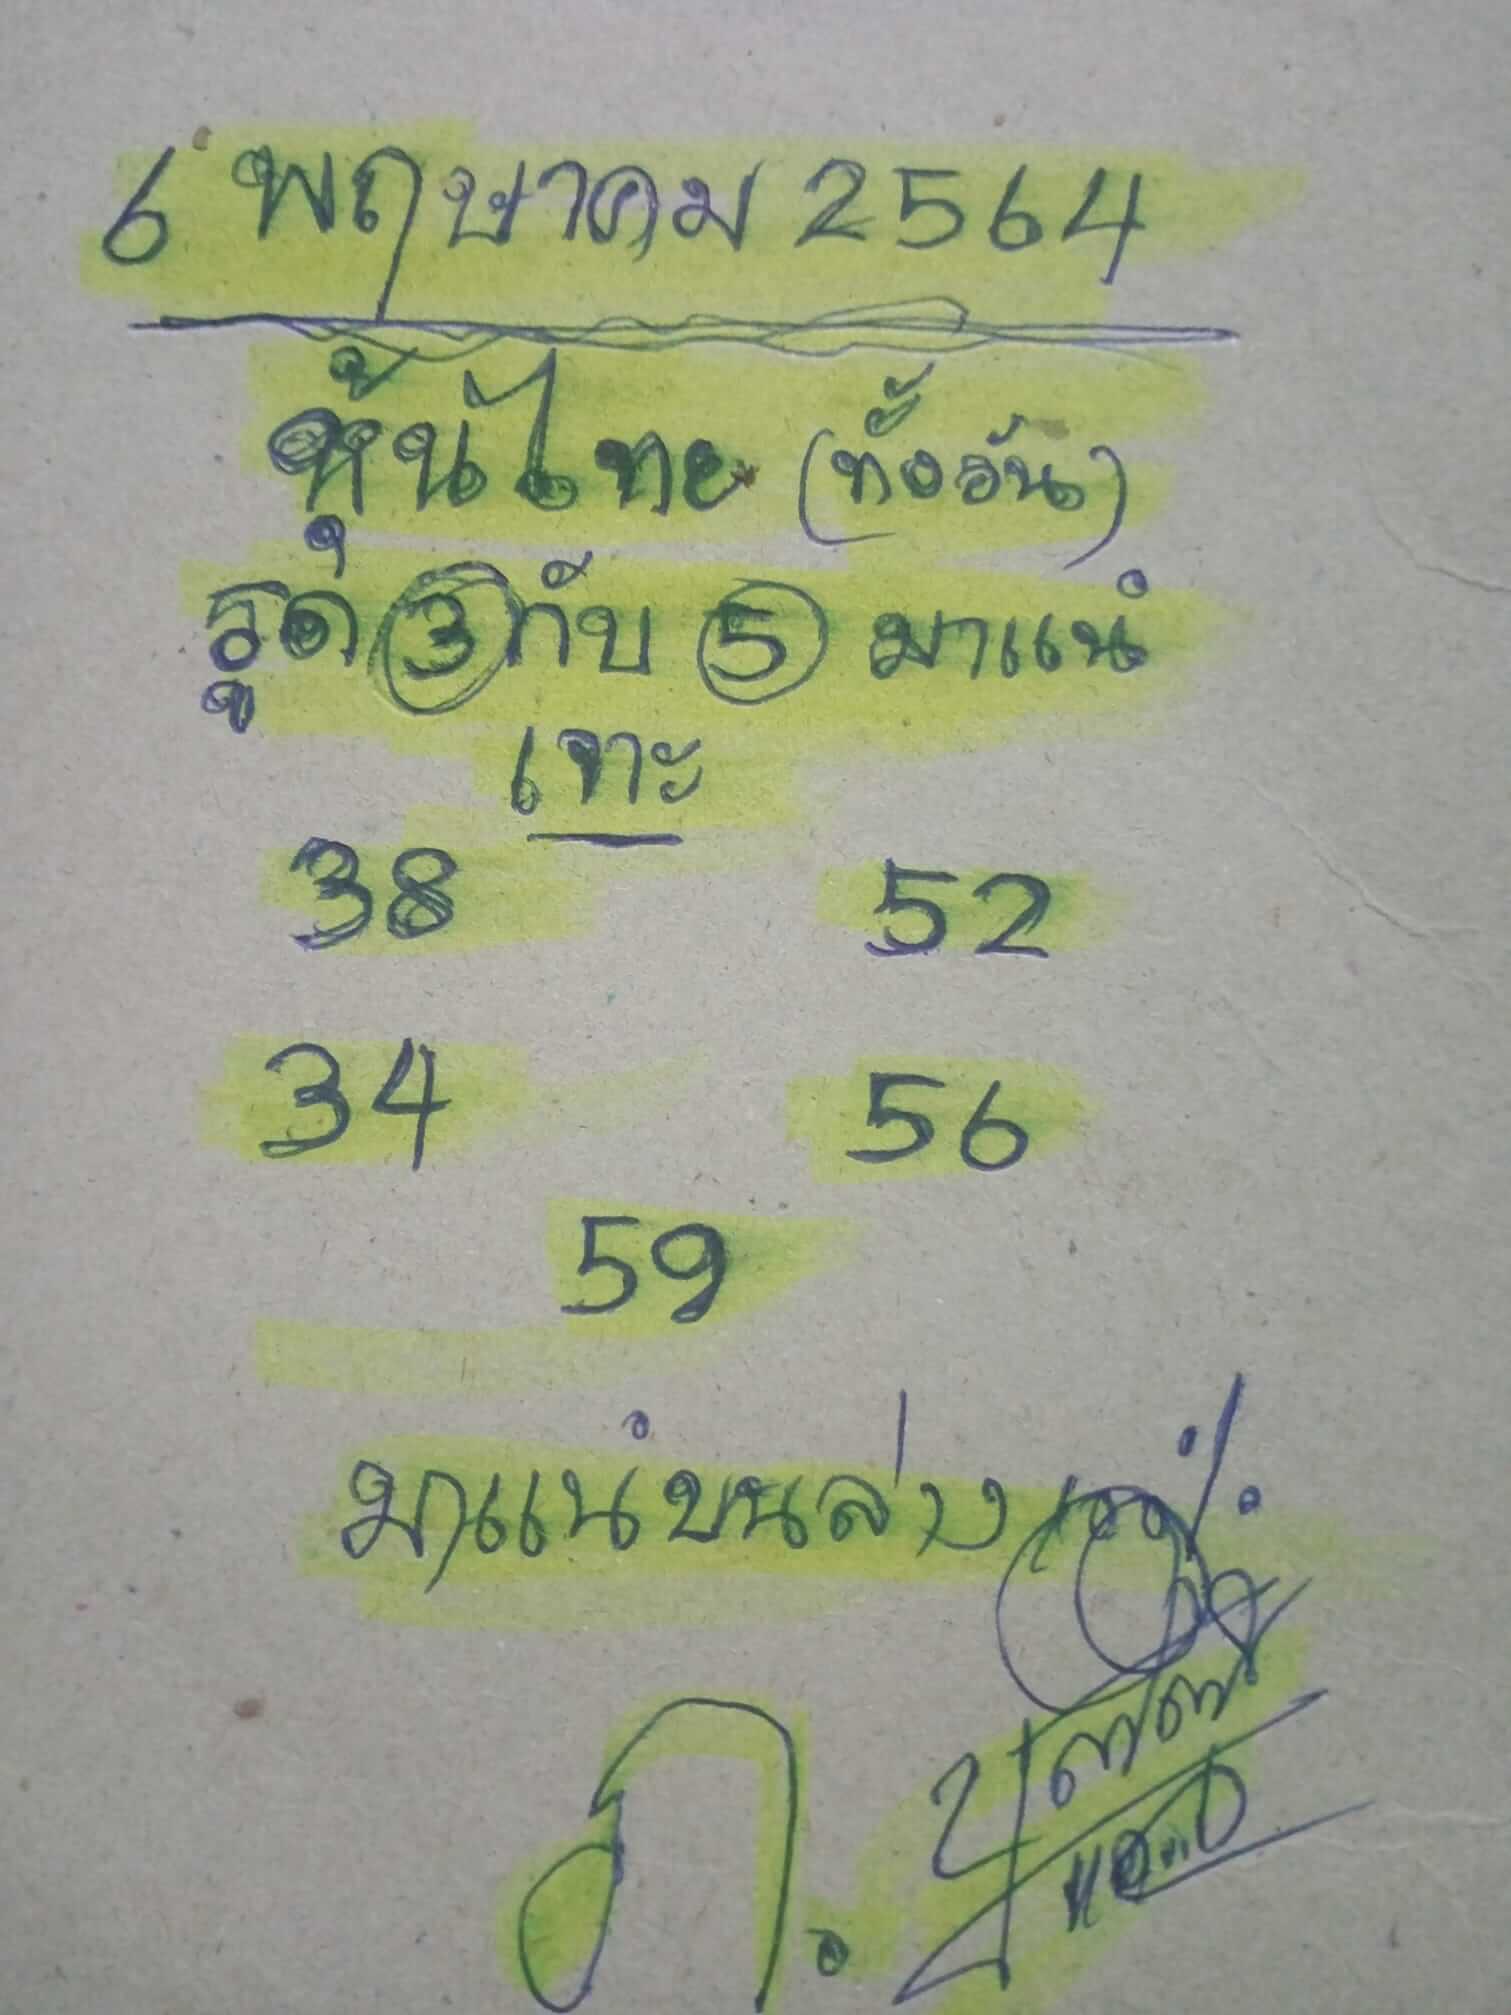 6 พฤษาคม 2564
หุ้นไทย (ทั้งวัน)
รูด 3 กับ 5 มาแน่
เทาะ
38 52
34 56
59
มาแน่บนล่าง
ภ.